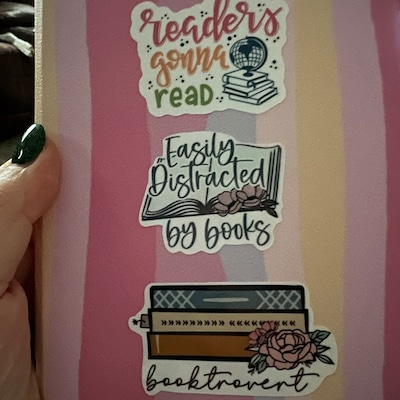 readers
gonna
read
Easily
Distracted
by books
booktrovert